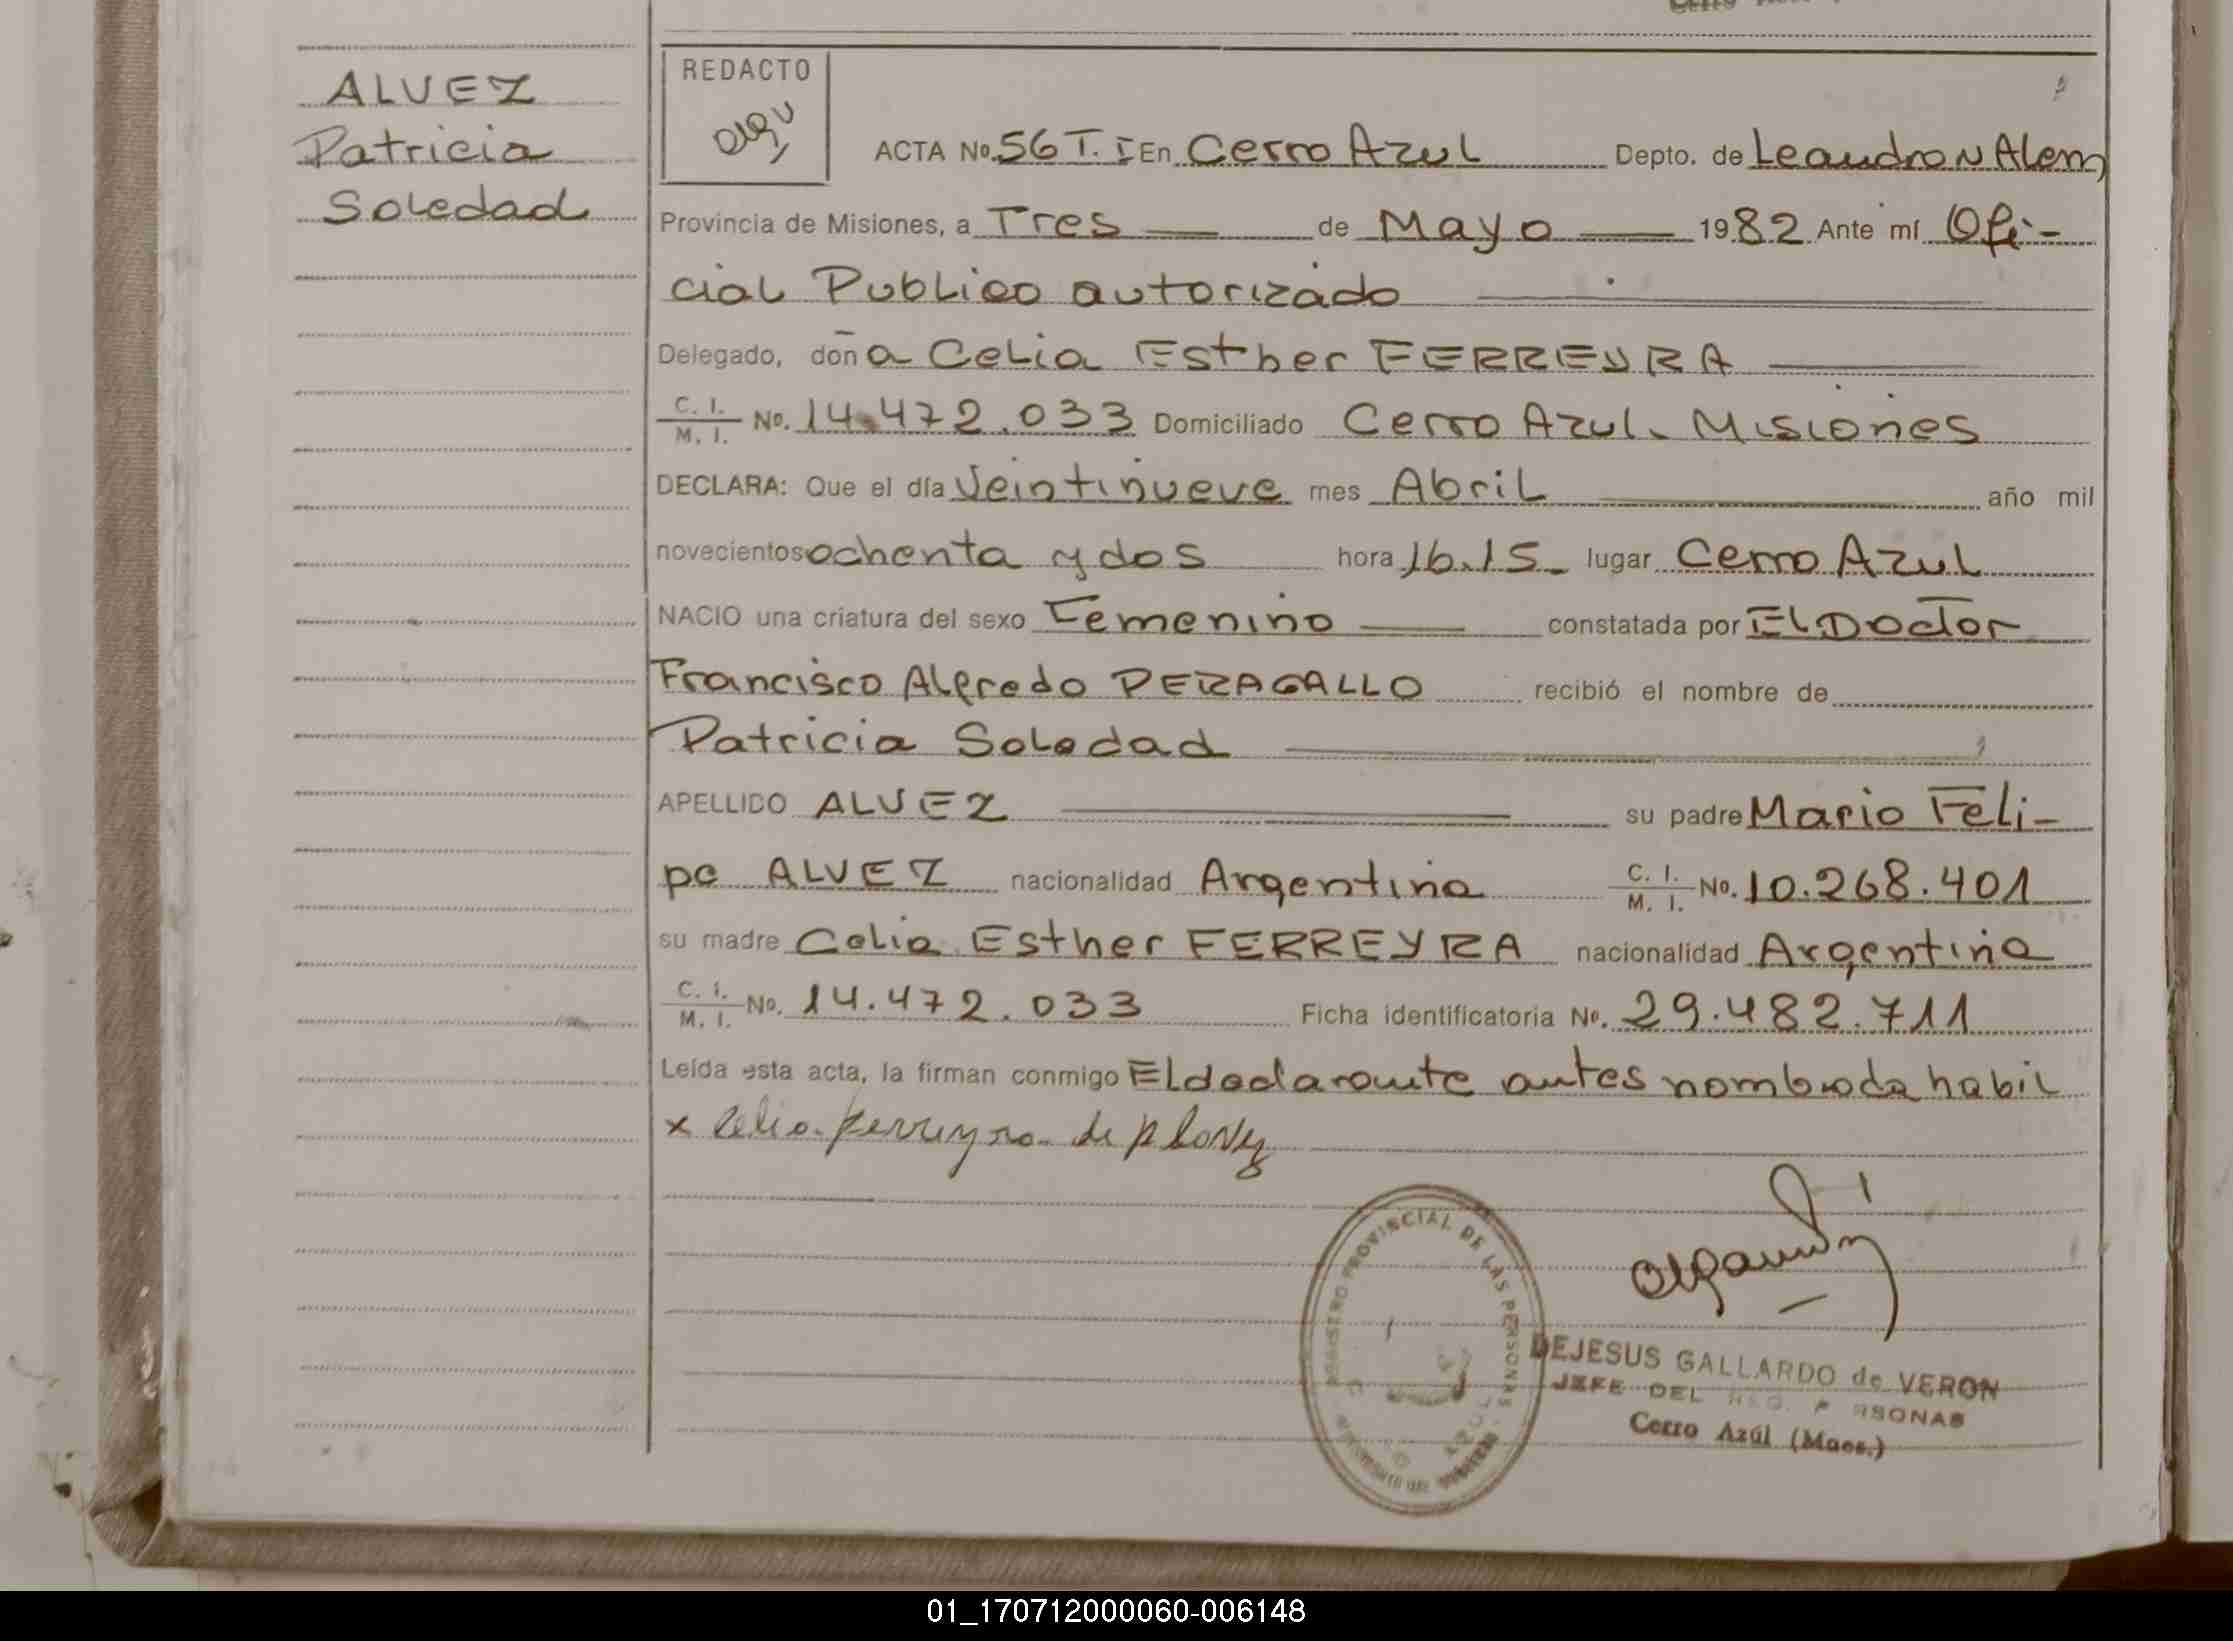 ALVEZ
Patricia
Soledad
REDACTO
ACTA No. 56 T. I En Cerro Azul Depto. de Leandro N Alem,
Provincia de Misiones, a Tres de Mayo 1982 Ante mí Ofi-
cial Publico autorizado
Delegado, doña Celia Esther FERREYRA
C. I. / M. I. No. 14.472.033 Domiciliado Cerro Azul. Misiones
DECLARA: Que el día Veintinueve mes Abril año mil
novecientos ochenta y dos hora 16.15 lugar Cerro Azul
NACIO una criatura del sexo Femenino constatada por El Doctor
Francisco Alfredo PERAGALLO recibió el nombre de
Patricia Soledad
APELLIDO ALVEZ su padre Mario Feli-
pe ALVEZ nacionalidad Argentina C. I. / M. I. No. 10.268.401
su madre Celia Esther FERREYRA nacionalidad Argentina
C. I. / M. I. No. 14.472.033 Ficha identificatoria No. 29.482.711
Leída esta acta, la firman conmigo El declarante antes nombrada habil
x Celia Ferreyra de Alvez
REGISTRO PROVINCIAL DE LAS PERSONAS
DEJESUS GALLARDO de VERON
JEFE DEL REG. PERSONAS
Cerro Azúl (Mnes.)
01_170712000060-006148